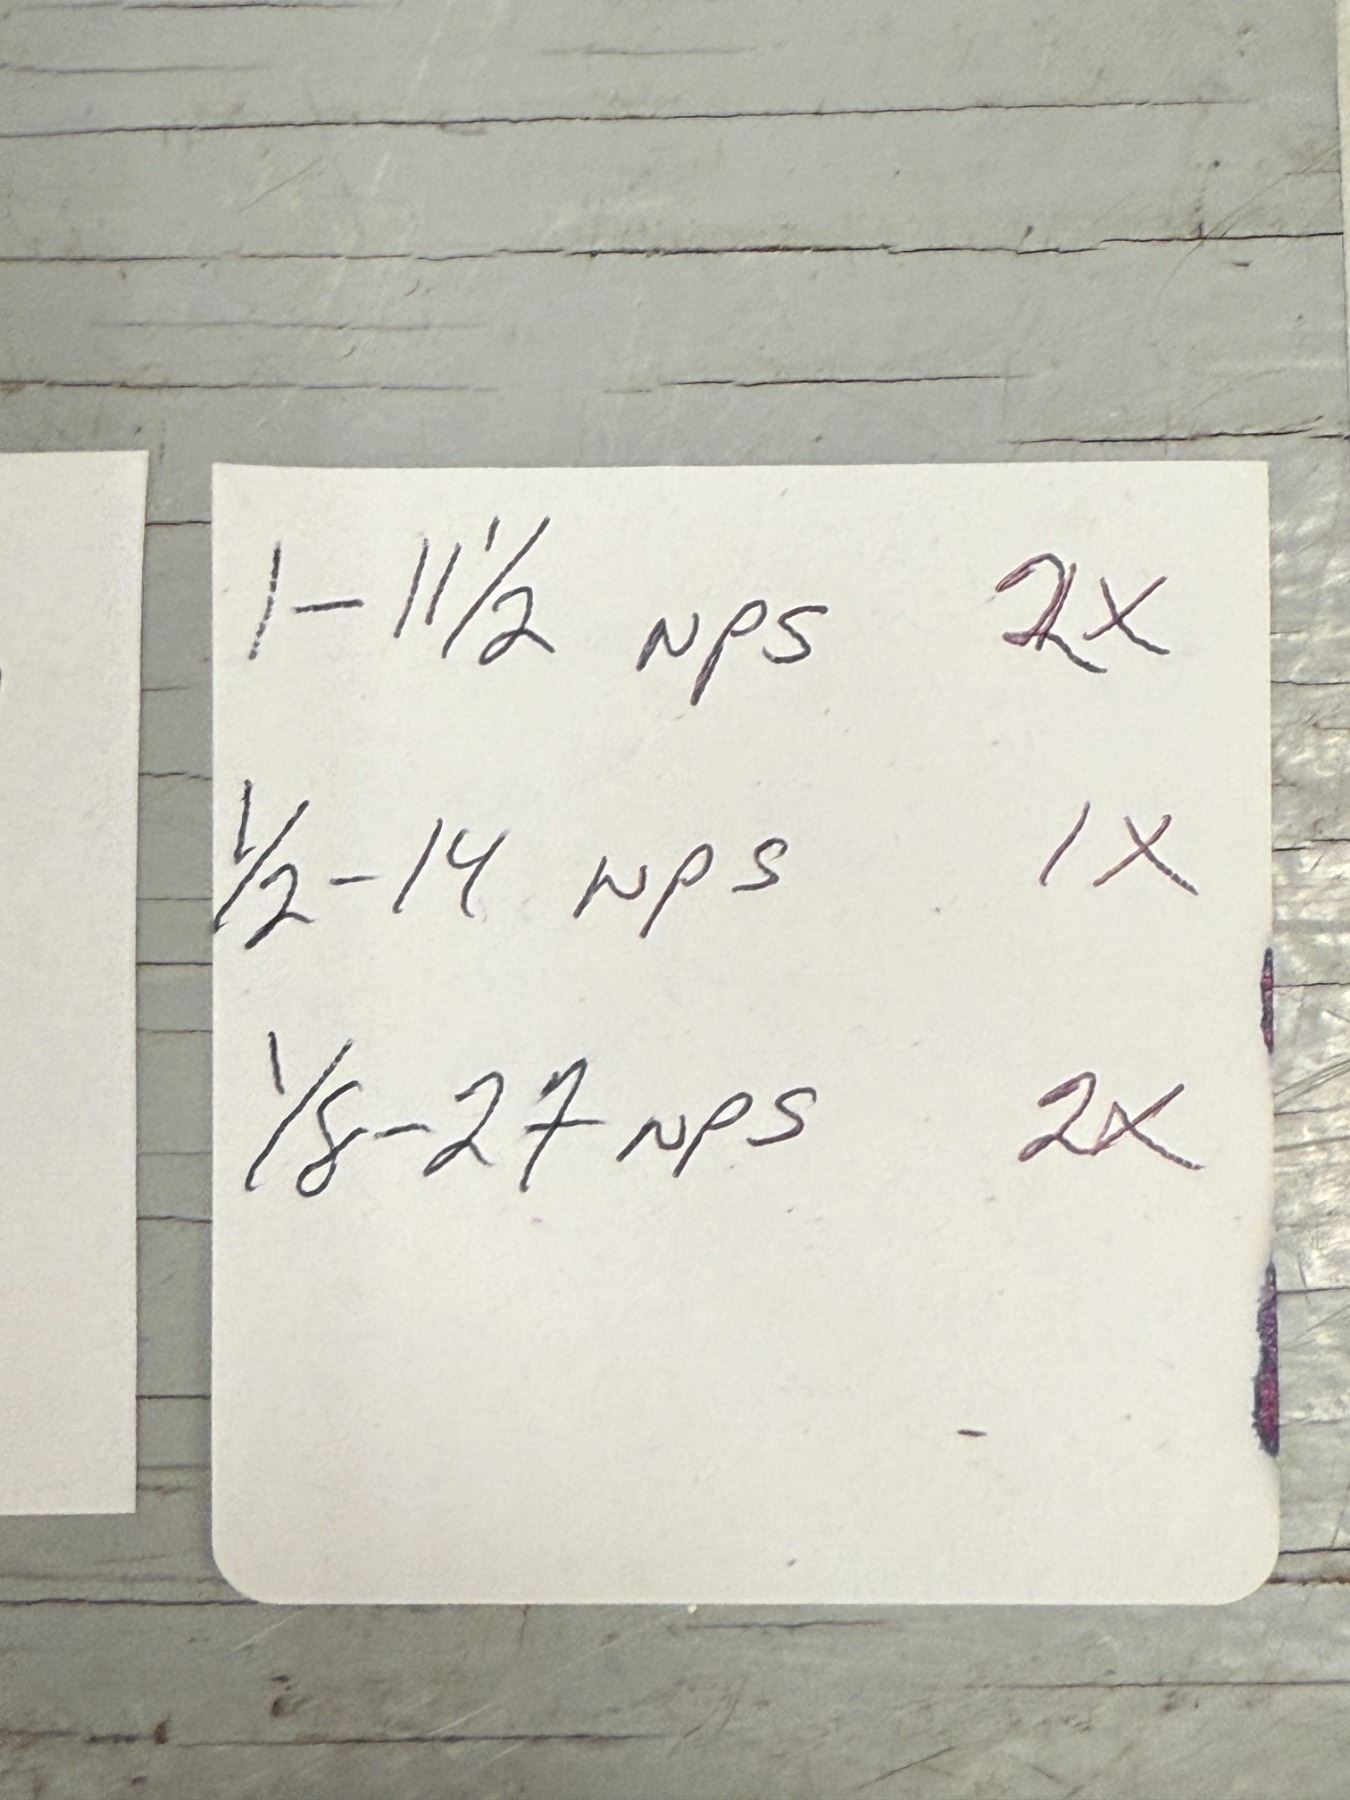 1-11 1/2 NPS 2X
1/2-14 NPS 1X
1/8-27 NPS 2X